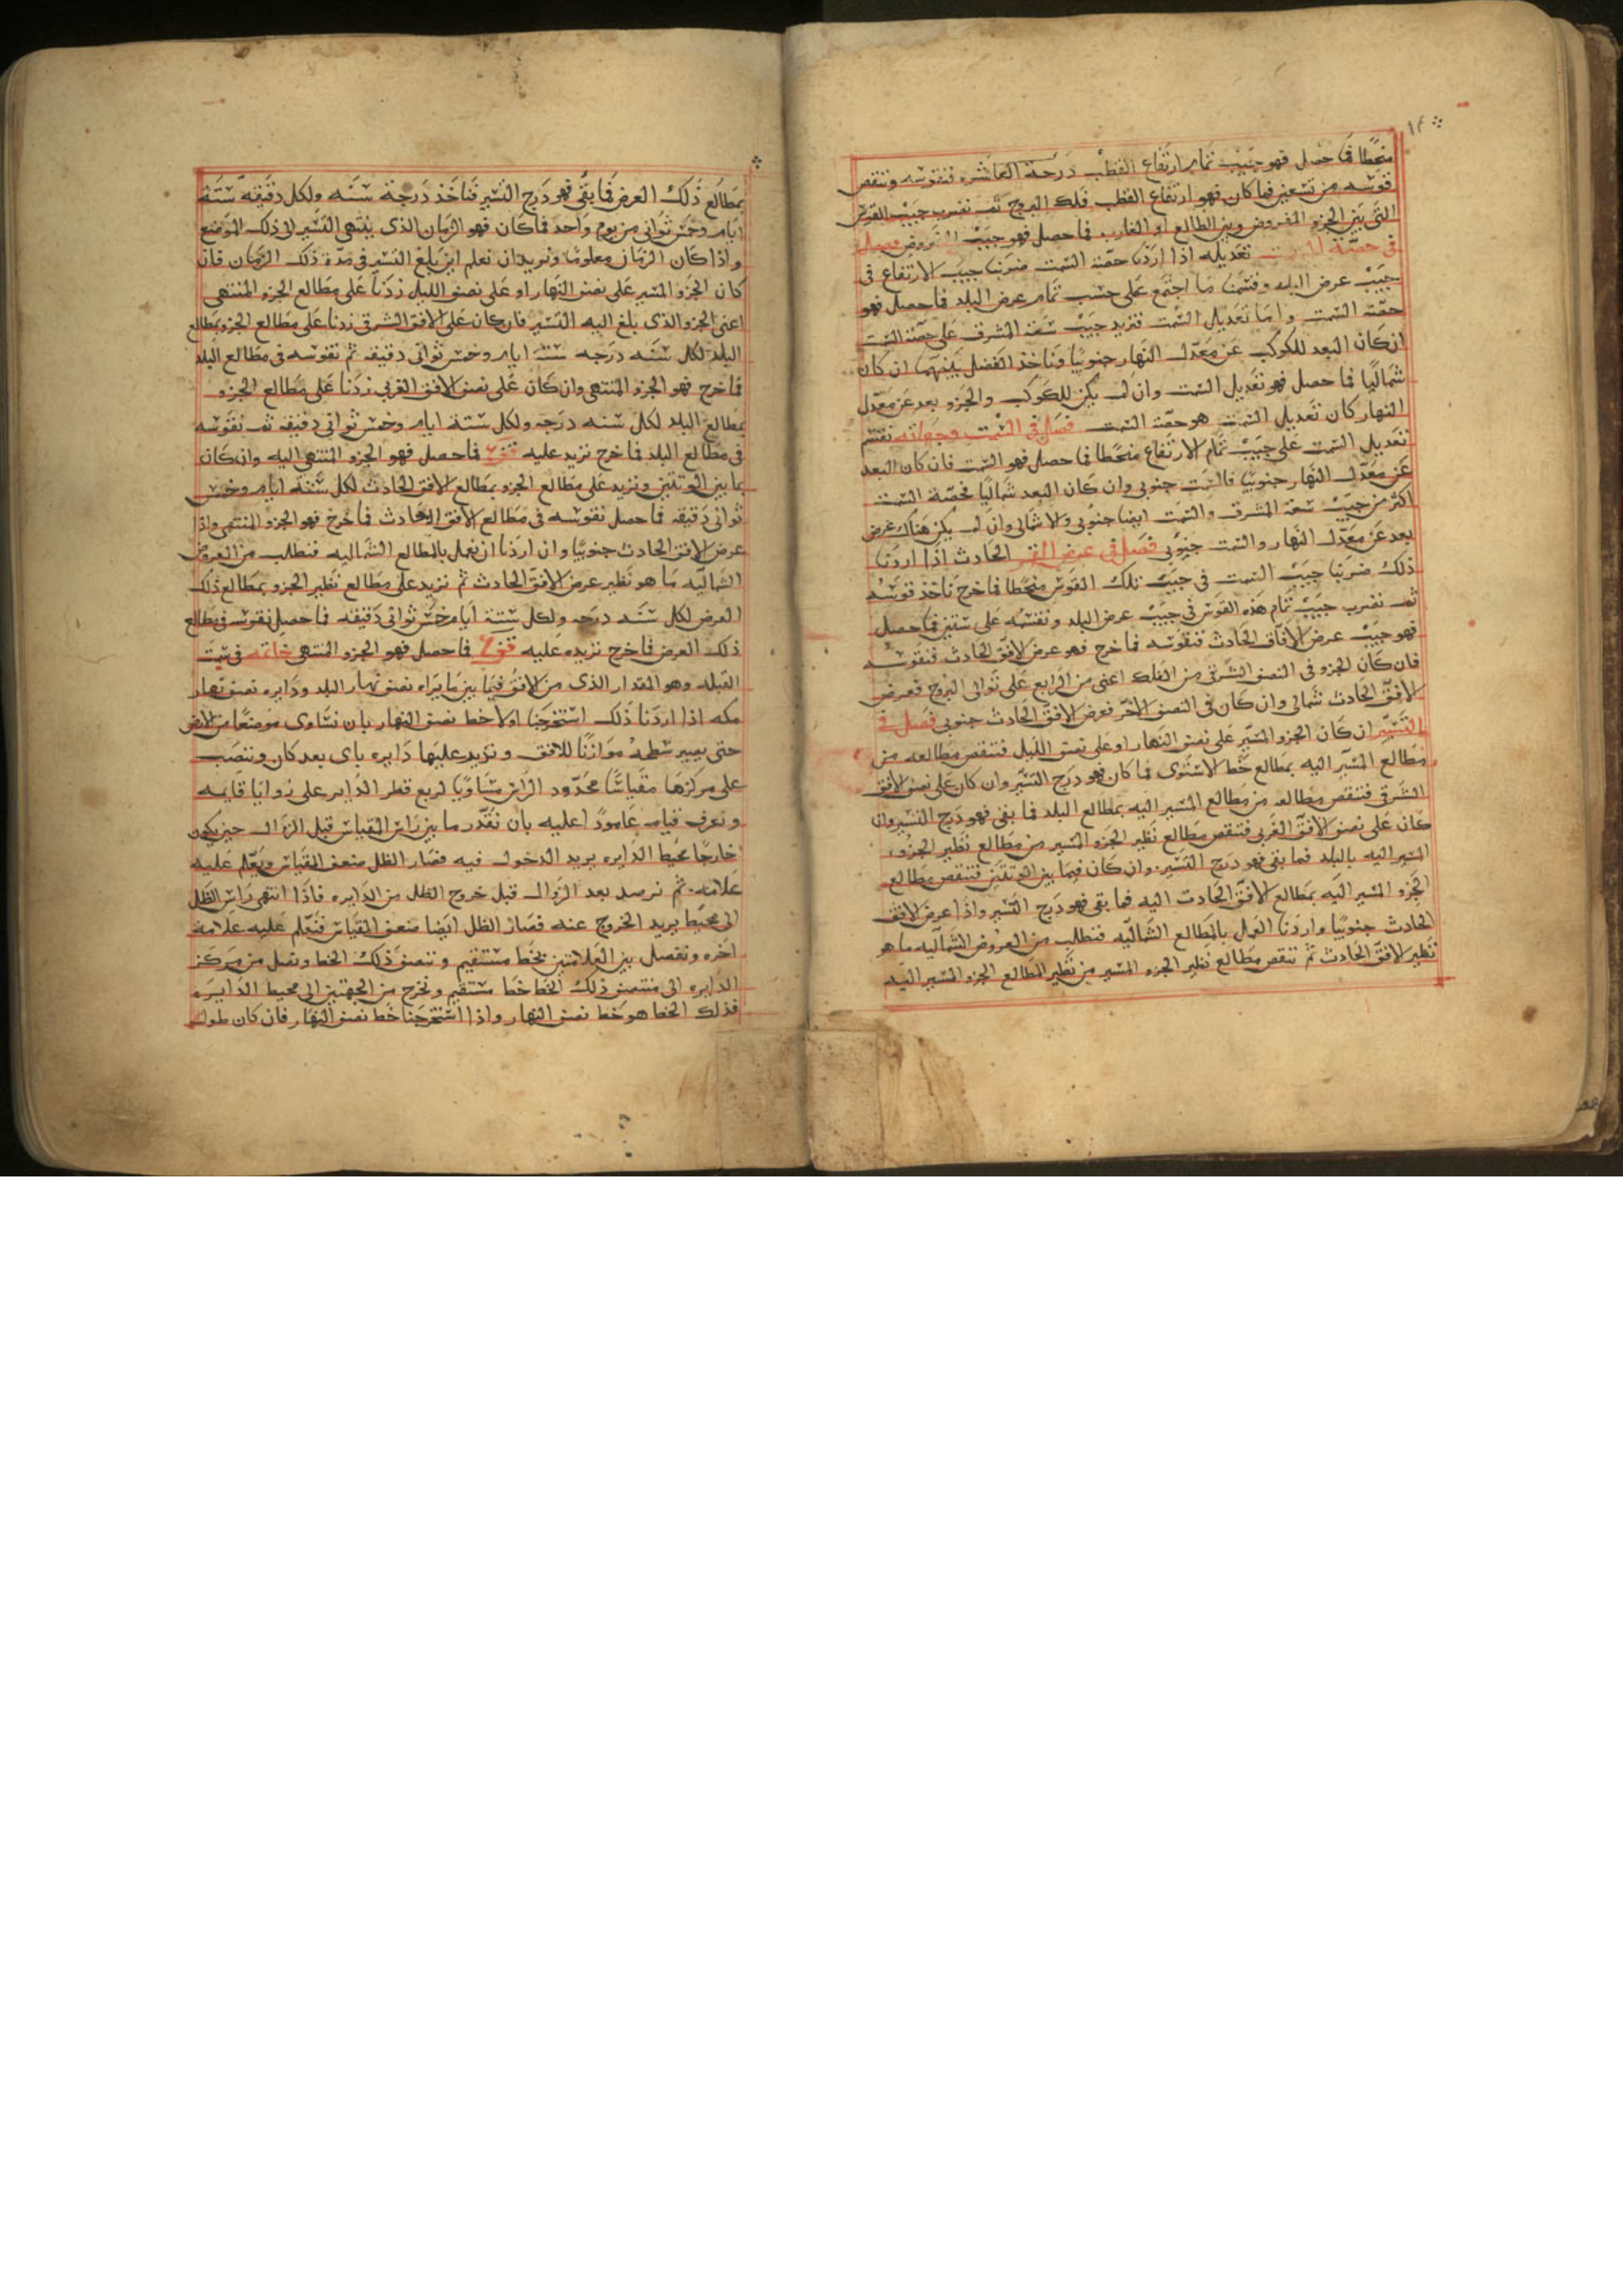 ١٤
منحطا فما حصل فهو جيب تمام ارتفاع القطب درجة العاشره فنقوسه وننقص
قوسه من تسعين فما كان فهو ارتفاع القطب فلك البروج ثم نضرب جيب القوس
التى بين الجزو المفروض وبين الطالع او الغارب فما حصل فهو جيب
فى حصة تعديله اذا اردنا حصة السمت ضربنا جيب الارتفاع فى
جيب عرض البلد وقسمنا ما اجتمع على جيب تمام عرض البلد فما حصل فهو
حصة السمت واما تعديل السمت فنزيد جيب سعة المشرق على حصة السمت
ان كان البعد للكوكب عن معدل النهار جنوبيا وناخذ الفضل بينهما ان كان
شماليا فما حصل فهو تعديل السمت وان لم يكن للكوكب والجزو بعد عن معدل
النهار كان تعديل السمت هو حصة السمت فصل فى السمت وجهاته نقسم
تعديل السمت على جيب تمام الارتفاع منحطا فما حصل فهو السمت فان كان البعد
عن معدل النهار جنوبيا فالسمت جنوبى وان كان البعد شماليا فحصة السمت
اكثر من جيب سعة المشرق والسمت ايضا جنوبى والا شمالى وان لم يكن هناك عرض
بعد عن معدل النهار والسمت جنوبى فصل فى عرض الافق الحادث اذا اردنا
ذلك ضربنا جيب السمت فى جيب تلك القوس منحطا فما خرج ناخذ قوسه
ثم نضرب جيب تمام هذه القوس فى جيب عرض البلد ونقسمه على ستين فما حصل
فهو جيب عرض الافاق الحادث فنقوسه فما خرج فهو عرض الافق الحادث فنقوسه
فان كان الجزو فى النصف الشرقى من الفلك اعنى من الرابع على توالى البروج فعرض
الافق الحادث شمالى وان كان فى النصف الاخر فعرض الافق الحادث جنوبى فصل فى
التسيير ان كان الجزو المسير على نصف النهار او على نصف الليل فننقص مطالعه من
مطالع المسير اليه بمطالع خط الاستوى فما كان فهو درج التسير وان كان على نصف الافق
الشرقى فننقص مطالعه من مطالع المسير اليه بمطالع البلد فما بقى فهو درج التسير وان
كان على نصف الافق الغربى فننقص مطالع نظير الجزو المسير من مطالع نظير الجزو
المسير اليه بالبلد فما بقى فهو درج التسير وان كان فيما بين الوتدين فننقص مطالع
الجزو المسير اليه بمطالع الافق الحادث اليه فما بقى فهو درج التسير واذا عرض الافق
الحادث جنوبيا واردنا العمل بالمطالع الشماليه فنطلب من العروض الشماليه ما هو
نظير الافق الحادث ثم ننقص مطالع نظير الجزو المسير من نظير المطالع الجزو المسير اليه
بمطالع ذلك العرض فما بقى فهو درج التسير فناخذ درجة سنه ولكل دقيقه ستة
ايام وخمس ثوانى من يوم واحد فما كان فهو الزمان الذى ينتهى التسير الى ذلك الموضع
واذا كان الزمان معلوما ونريد ان نعلم اين بلغ التسير فى مدة ذلك الزمان فان
كان الجزو المسير على نصف النهار او على نصف الليل زدنا على مطالع الجزو المنتهى
اعنى الجزو الذى بلغ اليه التسير فان كان على الافق الشرقى زدنا على مطالع الجزو بمطالع
البلد لكل سنه درجه ستة ايام وخمس ثوانى دقيقه ثم نقوسه فى مطالع البلد
فما خرج فهو الجزو المنتهى وان كان على نصف الافق الغربى زدنا على مطالع الجزو
بمطالع البلد لكل سنه درجه ولكل ستة ايام وخمس ثوانى دقيقه ثم نقوسه
فى مطالع البلد فما خرج نزيد عليه فما حصل فهو الجزو المنتهى اليه وان كان
بما بين الوتدين ونزيد على مطالع الجزو بمطالع الافق الحادث لكل ستة ايام وخمس
ثوانى دقيقه فما حصل نقوسه فى مطالع الافق الحادث فما خرج فهو الجزو المنتهى واذا
عرض الافق الحادث جنوبيا وان اردنا ان نعمل بالمطالع الشماليه فنطلب من العروض
الشماليه ما هو نظير عرض الافق الحادث ثم نزيد على مطالع نظير الجزو بمطالع ذلك
العرض لكل سنه درجه ولكل ستة ايام خمس ثوانى دقيقه فما حصل نقوسه فى مطالع
ذلك العرض فما خرج نزيده عليه فما حصل فهو الجزو المنتهى خاتمه فى سمت
القبله وهو المقدار الذى من الافق فيما بين ما يراه نصف نهار البلد ودايره نصف نهار
مكه اذا اردنا ذلك استخرجنا اولا خط نصف النهار بان نساوى موضعا من الارض
حتى يصير سطحه موازنا للافق وندير عليها دايره باى بعد كان وننصب
على مركزها مقياسا محدود الراس مساويا لربع قطر الداير على زوايا قايمه
ونعرف قيامه عامودا عليه بان نقدر ما بين راس المقياس قبل الزوال حين يكون
خارجا محيط الدايره يريد الدخول فيه فصار الظل ضعف المقياس ونعلم عليه
علامه ثم نرصد بعد الزوال قبل خروج الظل من الدايره فاذا انتهى راس الظل
الى محيط يريد الخروج عنه فصار الظل ايضا ضعف المقياس فنعلم عليه علامة
اخره ونفصل بين العلامتين بخط مستقيم وننصف ذلك الخط ونصل من مركز
الدايره الى منتصف ذلك الخط خطا مستقيم ونخرج من الجهتين الى محيط الدايره
فذلك الخط هو خط نصف النهار واذا استخرجنا خط نصف النهار فان كان طول